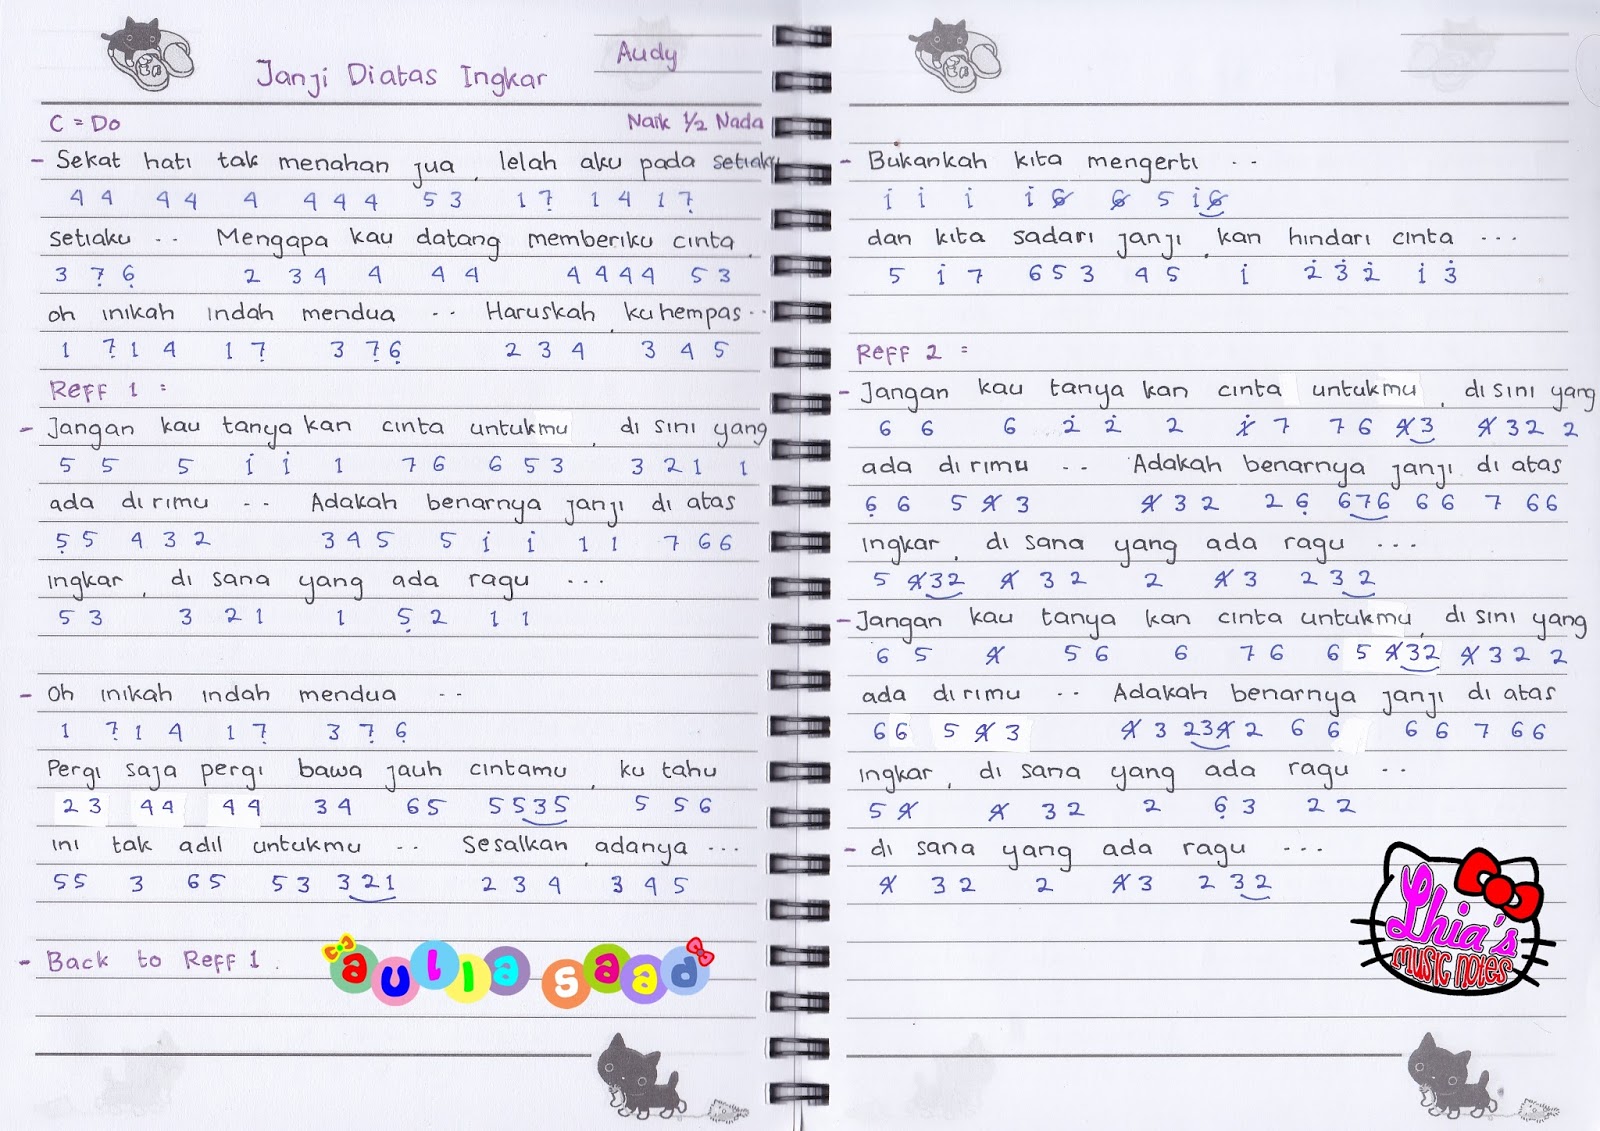 Janji Diatas Ingkar
Audy
C = Do
Naik 1/2 Nada
- Sekat hati tak menahan jua, lelah aku pada setiaku
4 4 4 4 4 4 4 4 5 3 1 7̣ 1 4 1 7̣
setiaku .. Mengapa kau datang memberiku cinta,
3 7̣ 6̣ 2 3 4 4 4 4 4 4 4 4 5 3
oh inikah indah mendua .. Haruskah, ku hempas ..
1 7̣ 1 4 1 7̣ 3 7̣ 6̣ 2 3 4 3 4 5
Reff 1 :
- Jangan kau tanya kan cinta untukmu, di sini yang
5 5 5 i i 1 7 6 6 5 3 3 2 1 1
ada dirimu .. Adakah benarnya janji di atas
5̣ 5 4 3 2 3 4 5 5 i i 1 1 7 6 6
ingkar, di sana yang ada ragu ...
5 3 3 2 1 1 5̣ 2 1 1
- Oh inikah indah mendua ..
1 7̣ 1 4 1 7̣ 3 7̣ 6̣
Pergi saja pergi bawa jauh cintamu, ku tahu
2 3 4 4 4 4 3 4 6 5 5 5 3 5 5 5 6
ini tak adil untukmu .. Sesalkan, adanya ...
5 5 3 6 5 5 3 3 2 1 2 3 4 3 4 5
- Back to Reff 1.
aulia saad
- Bukankah kita mengerti ..
i i i i 6̸ 6̸ 5 i 6̸
dan kita sadari janji, kan hindari cinta ...
5 i 7 6 5 3 4 5 i 2̇ 3̇ 2̇ i 3̇
Reff 2 :
- Jangan kau tanya kan cinta untukmu, di sini yang
6 6 6 2̇ 2̇ 2 i̸ 7 7 6 4̸ 3 4̸ 3 2 2
ada dirimu .. Adakah benarnya janji di atas
6̣ 6 5 4̸ 3 4̸ 3 2 2 6̣ 6 7 6 6 6 7 6 6
ingkar, di sana yang ada ragu ...
5 4̸ 3 2 4̸ 3 2 2 4̸ 3 2 3 2
- Jangan kau tanya kan cinta untukmu, di sini yang
6 5 4̸ 5 6 6 7 6 6 5 4̸ 3 2 4̸ 3 2 2
ada dirimu .. Adakah benarnya janji di atas
6 6 5 4̸ 3 4̸ 3 2 3 4̸ 2 6 6 6 6 7 6 6
ingkar, di sana yang ada ragu ..
5 4̸ 4̸ 3 2 2 6̣ 3 2 2
- di sana yang ada ragu ...
4̸ 3 2 2 4̸ 3 2 3 2
Lhia's
MUSIC NOTES